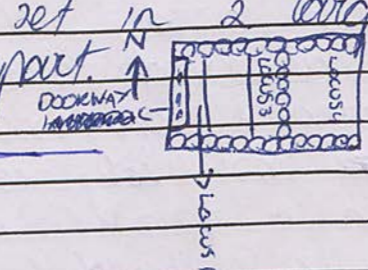 set in 2
part. N
DOORWAY
LOCUS 3
LOCUS 4
LOCUS